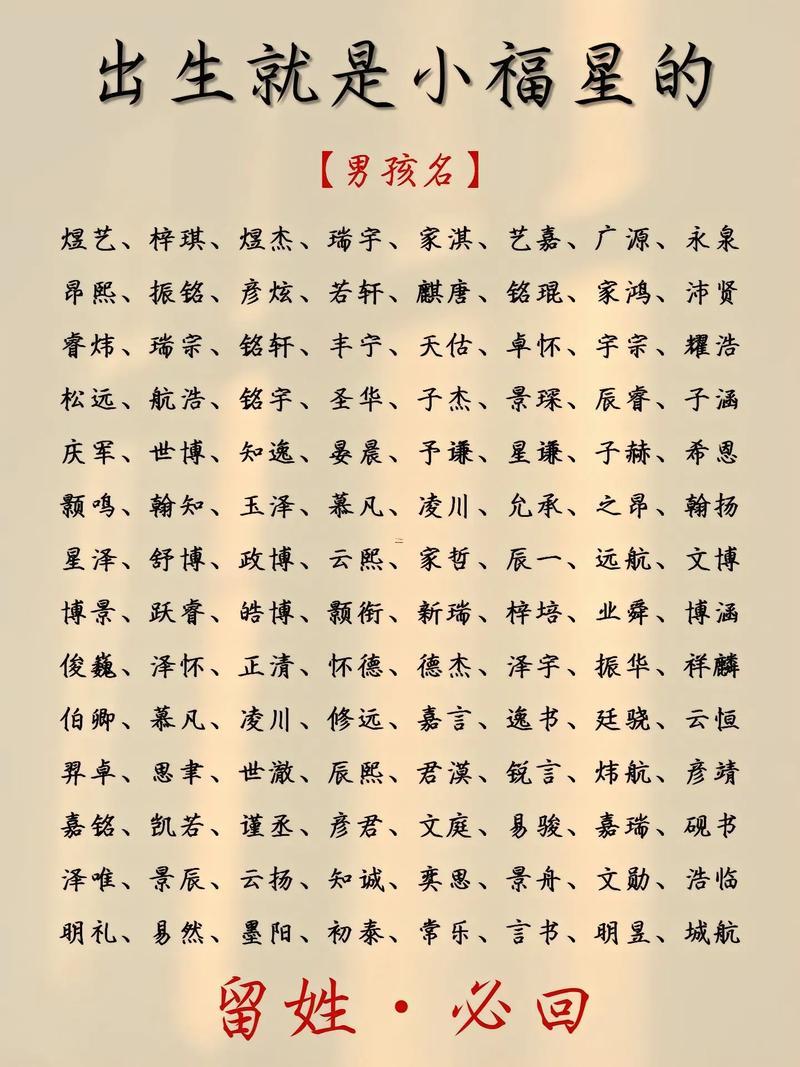 出生就是小福星的
【男孩名】
煜艺、梓琪、煜杰、瑞宇、家淇、艺嘉、广源、永泉
昂熙、振铭、彦炫、若轩、麒唐、铭琨、家鸿、沛贤
睿炜、瑞宗、铭轩、丰宁、天估、卓怀、宇宗、耀浩
松远、航浩、铭宇、圣华、子杰、景琛、辰睿、子涵
庆军、世博、知逸、晏晨、予谦、星谦、子赫、希恩
颢鸣、翰知、玉泽、慕凡、凌川、允承、之昂、翰扬
星泽、舒博、政博、云熙、家哲、辰一、远航、文博
博景、跃睿、皓博、颢衔、新瑞、梓培、业舜、博涵
俊巍、泽怀、正清、怀德、德杰、泽宇、振华、祥麟
伯卿、慕凡、凌川、修远、嘉言、逸书、廷骁、云恒
羿卓、思聿、世澈、辰熙、君漠、锐言、炜航、彦靖
嘉铭、凯若、谨丞、彦君、文庭、易骏、嘉瑞、砚书
泽唯、景辰、云扬、知诚、奕思、景舟、文勋、浩临
明礼、易然、墨阳、初泰、常乐、言书、明昱、城航
留姓·必回